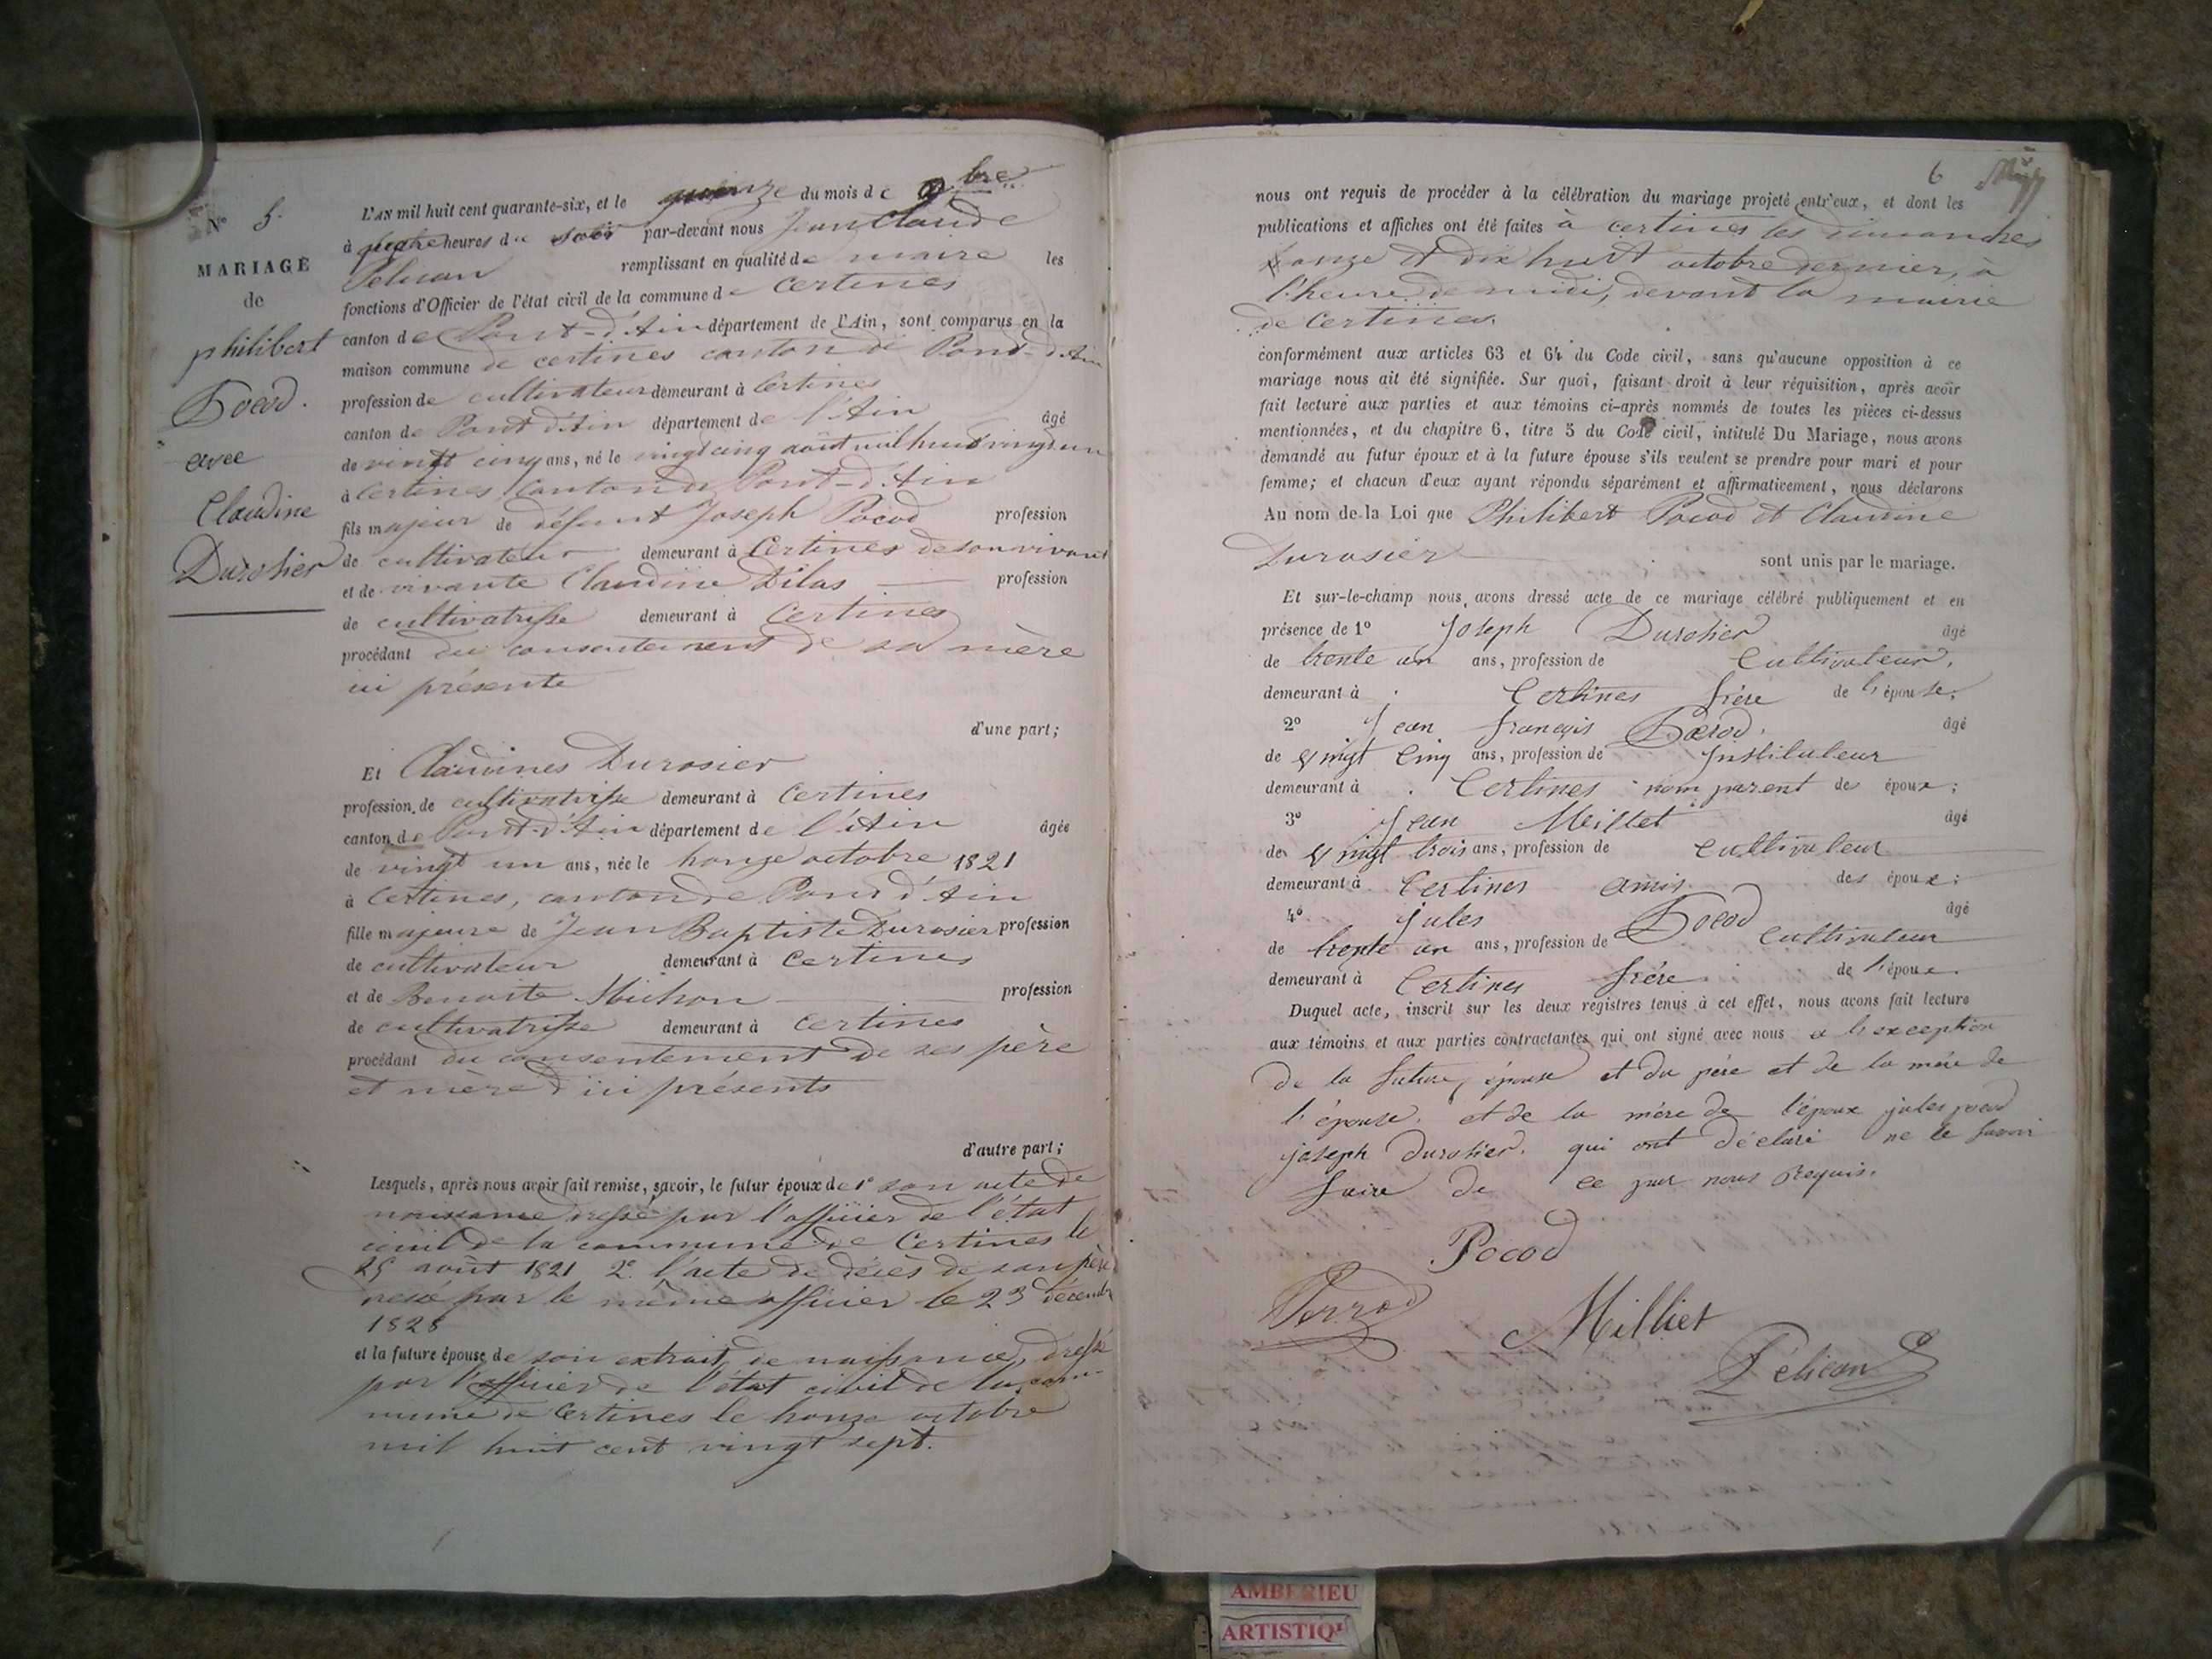 N° 5.
MARIAGE
de
philibert
Pocod.
avec
Claudine
Durosier
L'AN mil huit cent quarante-six, et le quinze du mois de 9bre
à quatre heures du soir par-devant nous Jean Claude
Pelican remplissant en qualité de maire les
fonctions d'Officier de l'état civil de la commune de Certines
canton de Pont-d'Ain département de l'Ain, sont comparus en la
maison commune de certines canton de Pont-d'Ain
profession de cultivateur demeurant à Certines
canton de Pont d'Ain département de l'Ain âgé
de vingt cinq ans, né le vingt cinq août mil huit vingt un
à Certines Canton de Pont-d'Ain
fils majeur de défunt Joseph Pocod profession
de cultivateur demeurant à Certines de son vivant
et de vivante Claudine Dilas profession
de cultivatrisse demeurant à Certines
procédant du consentement de sa mère
ici présente
d'une part;
Et Claudines Durosier
profession de cultivatrisse demeurant à Certines
canton de Pont-d'Ain département de l'Ain âgée
de vingt un ans, née le honze octobre 1821
à Certines, canton de Pont d'Ain
fille majeure de Jean Baptiste Durosier profession
de cultivateur demeurant à Certines
et de Benoite Michon profession
de cultivatrisse demeurant à Certines
procédant du consentement de ses père
et mère d'ici présents
d'autre part;
Lesquels, après nous avoir fait remise, savoir, le futur époux de 1° son acte de
naissance dressé par l'officier de l'état
civil de la commune de Certines le
25 août 1821 2° l'acte de décès de son père
par le même officier le 23 décembre
1828
et la future épouse de son extrait de naissance, dressé
par l'officier de l'état civil de la com-
mune de Certines le honze octobre
mil huit cent vingt sept.
6
nous ont requis de procéder à la célébration du mariage projeté entr'eux, et dont les
publications et affiches ont été faites à certines les dimanches
honze et dix huit octobre dernier, à
l'heure de midi, devant la mairie
de Certines.
conformément aux articles 63 et 64 du Code civil, sans qu'aucune opposition à ce
mariage nous ait été signifiée. Sur quoi, faisant droit à leur réquisition, après avoir
fait lecture aux parties et aux témoins ci-après nommés de toutes les pièces ci-dessus
mentionnées, et du chapitre 6, titre 5 du Code civil, intitulé Du Mariage, nous avons
demandé au futur époux et à la future épouse s'ils veulent se prendre pour mari et pour
femme; et chacun d'eux ayant répondu séparément et affirmativement, nous déclarons
Au nom de la Loi que Philibert Pocod et Claudine
Durosier sont unis par le mariage.
Et sur-le-champ nous avons dressé acte de ce mariage célébré publiquement et en
présence de 1° Joseph Durosier âgé
de trente un ans, profession de Cultivateur,
demeurant à Certines frère de l'épouse;
2° Jean françois Perod. âgé
de vingt Cinq ans, profession de Instituteur
demeurant à Certines nom parent des époux;
3° Jean Meillet âgé
de vingt trois ans, profession de Cultivateur
demeurant à Certines amis des époux;
4° Jules Pocod âgé
de trente un ans, profession de Cultivateur
demeurant à Certines frère de l'époux.
Duquel acte, inscrit sur les deux registres tenus à cet effet, nous avons fait lecture
aux témoins et aux parties contractantes qui ont signé avec nous a l'exception
De la future, épouse et du père et de la mère de
l'épouse. et de la mère de l'époux jules pocod
joseph Durosier. qui ont déclaré ne le savoir
faire de ce par nous Requis.
Pocod
Perrod
Milliet
Pélican
AMBERIEU
ARTISTIQ